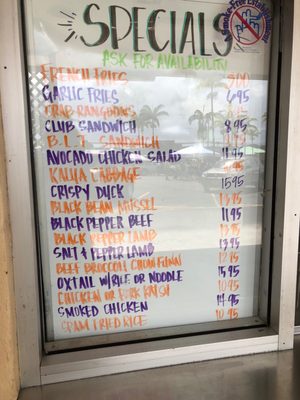 SPECIALS
Smoke-Free Establishment
ASK FOR AVAILABILITY
FRENCH FRIES
GARLIC FRIES 6.95
CRAB RANGOONS
CLUB SANDWICH 8.95
B.L.T. SANDWICH
AVOCADO CHICKEN SALAD 11.95
KALUA CABBAGE
CRISPY DUCK 15.95
BLACK BEAN MUSSEL 13.95
BLACK PEPPER BEEF 11.95
BLACK PEPPER LAMB 13.95
SALT & PEPPER LAMB 13.95
BEEF BROCCOLI CHOW FUNN 12.95
OXTAIL W/RICE OR NOODLE 15.95
CHICKEN OR PORK KATSU 10.95
SMOKED CHICKEN 14.95
SPAM FRIED RICE 10.95